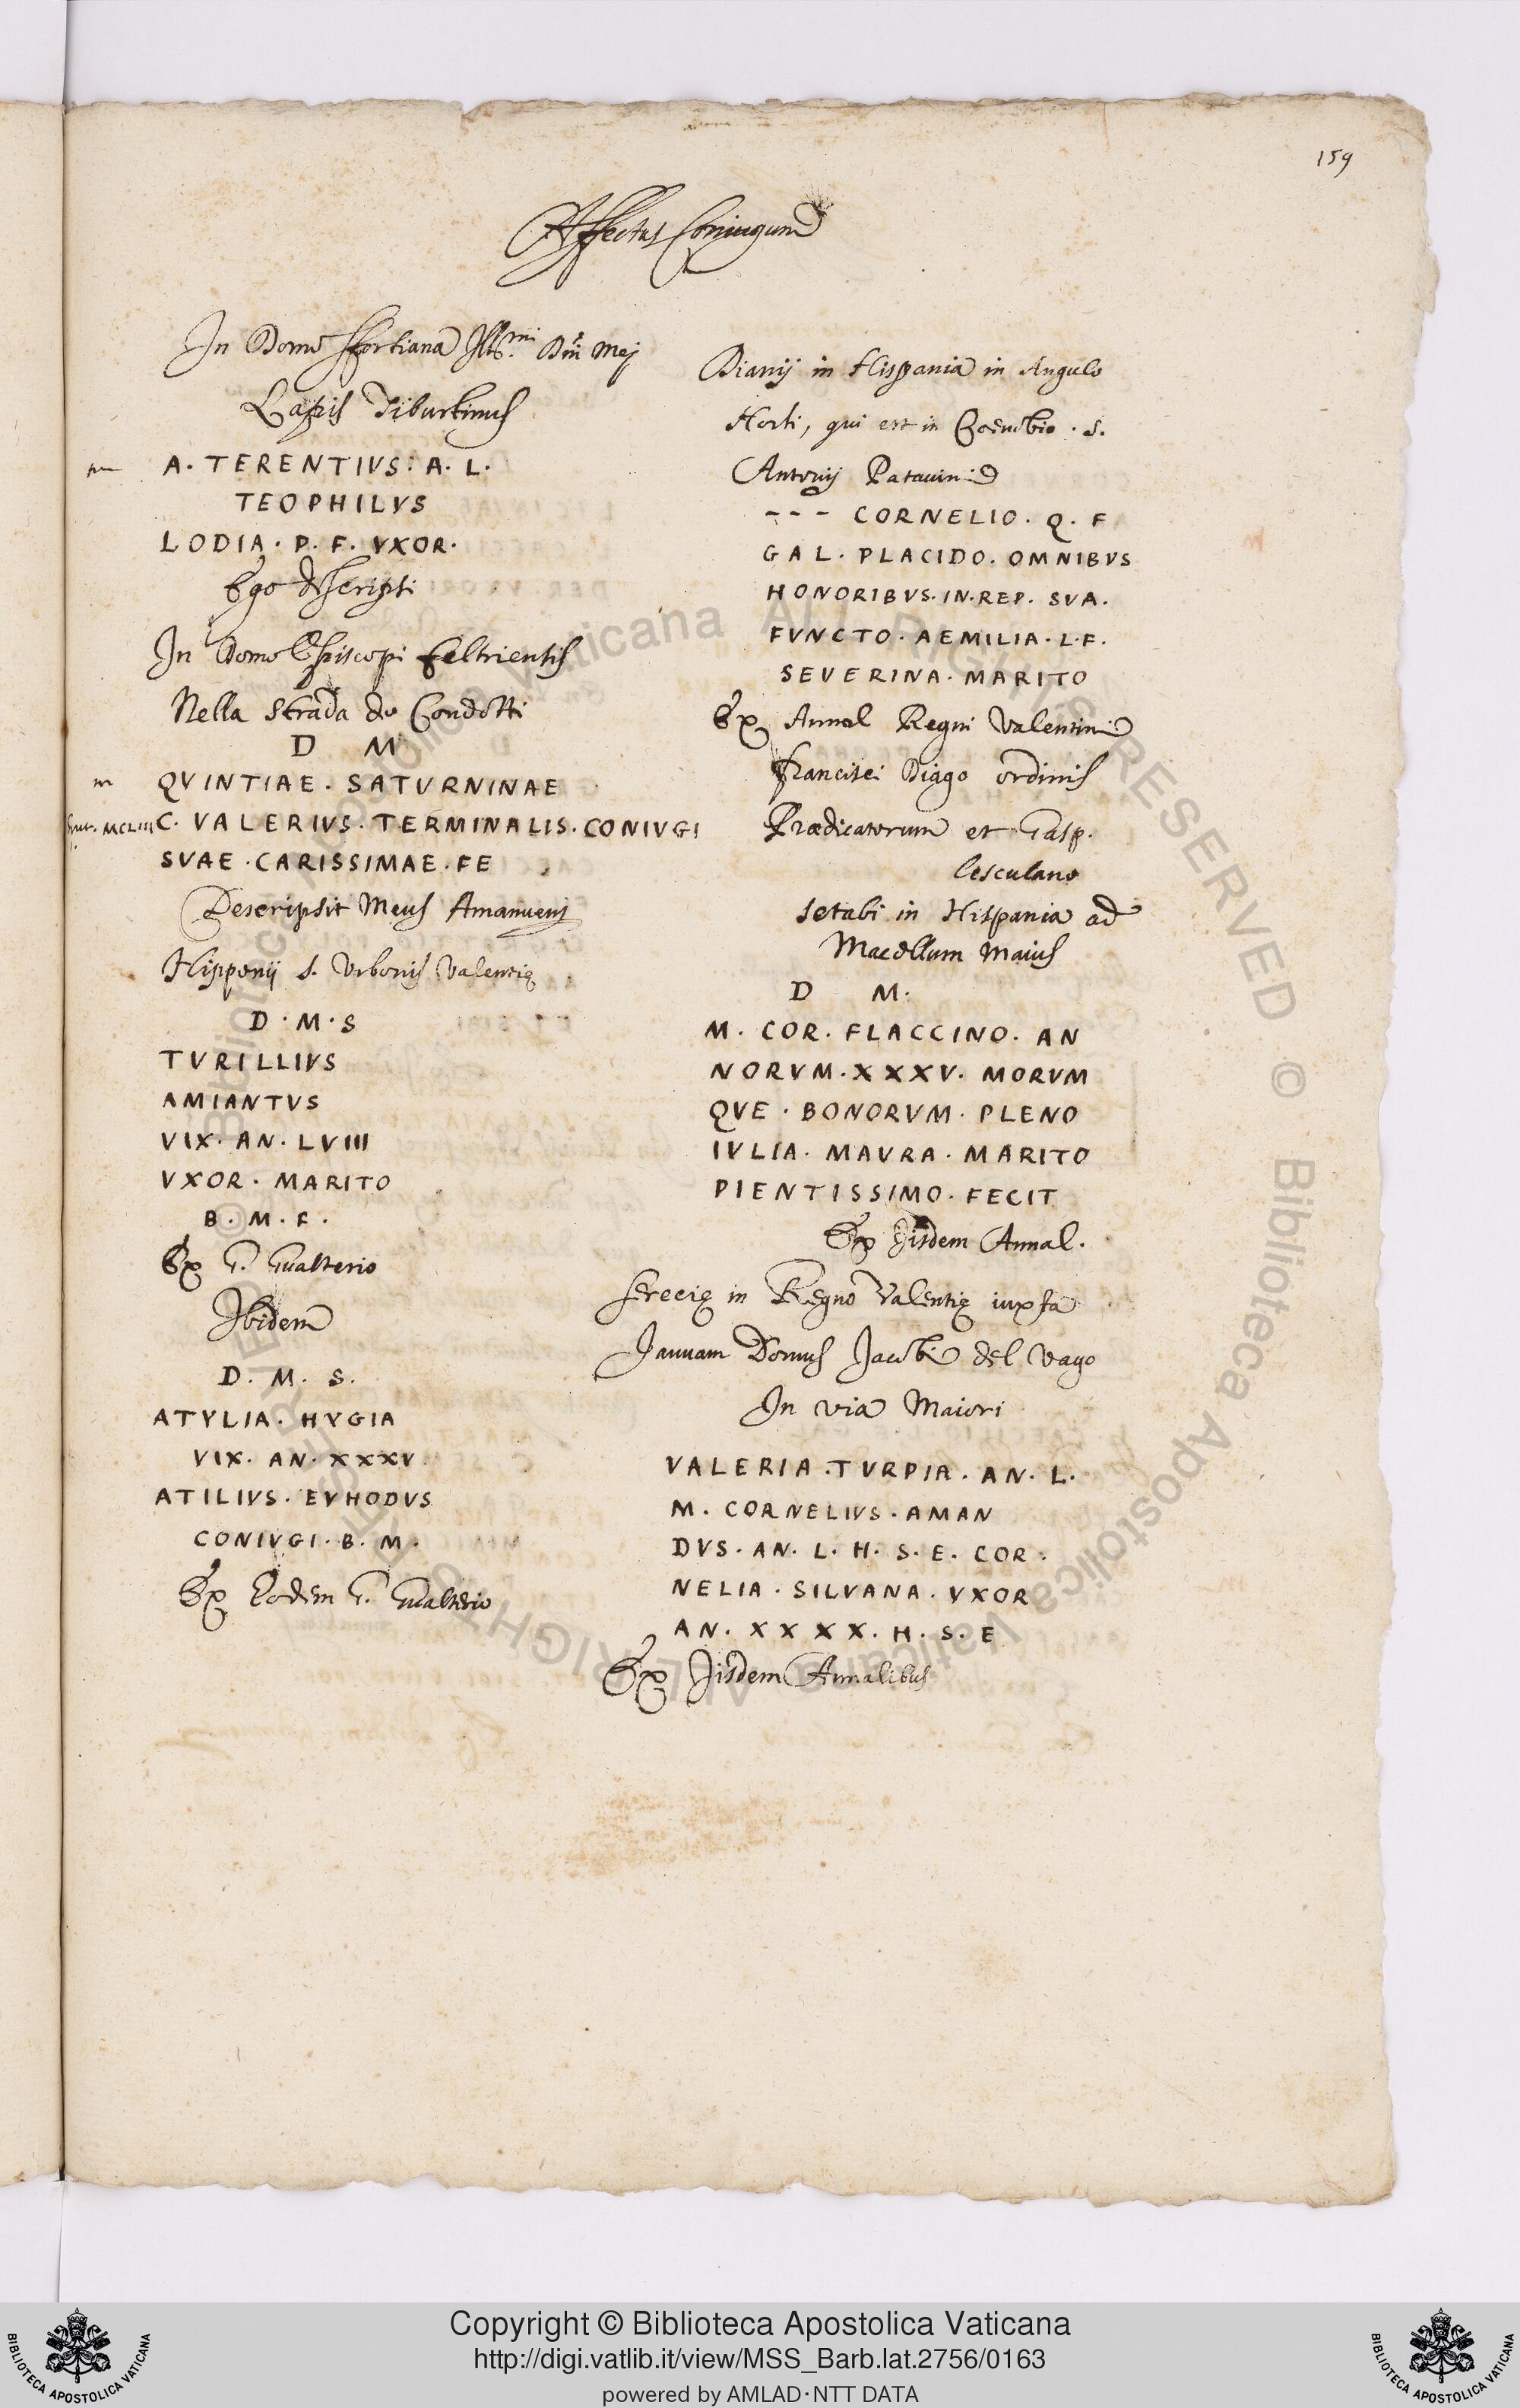 159
Affectus Coniugum
In Domo Sfortiana Ill.mi Dni Mej
Lapis Tiburtinus
A. TERENTIVS: A. L.
TEOPHILVS
LODIA. P. F. VXOR.
Ego descripsi
In Domo Episcopi Feltriensis
Nella Strada de Condotti
D M
m QVINTIAE. SATVRNINAE
MCLIII C. VALERIVS. TERMINALIS. CONIVGI
SVAE. CARISSIMAE. FE
Descripsit Meus Amanuens
Hipponij s. Vibonis Valentię
D. M. S
TVRILLIVS
AMIANTVS
VIX. AN. LVIII
VXOR. MARITO
B. M. F.
Ex G. Gualterio
Ibidem
D. M. S.
ATYLIA. HYGIA
VIX. AN. XXXV
ATILIVS. EVHODVS
CONIVGI. B. M.
Ex Eodem G. Gualterio
Dianij in Hispania in Angulo
Horti, qui est in Coenobio. S.
Antonij Patauini
--- CORNELIO. Q. F
GAL. PLACIDO. OMNIBVS
HONORIBVS. IN. REP. SVA.
FVNCTO. AEMILIA. L. F.
SEVERINA. MARITO
Ex Annal Regni Valentini
Francisci Diago ordinis
Prædicatorum et Gasp.
Cesculano
Setabi in Hispania ad
Macellum Maius
D M.
M. COR. FLACCINO. AN
NORVM. XXXV. MORVM
QVE. BONORVM. PLENO
IVLIA. MAVRA. MARITO
PIENTISSIMO. FECIT
Ex Iisdem Annal.
in Regno Valentię iuxta
Januam Domus Jacobi del Vayo
In via Maiori
VALERIA. TVRPIA. AN. L.
M. CORNELIVS. AMAN
DVS. AN. L. H. S. E. COR.
NELIA. SILVANA. VXOR
AN. XXXX. H. S. E
Ex Iisdem Annalibus
© Biblioteca Apostolica Vaticana ALL RIGHTS RESERVED
BIBLIOTECA APOSTOLICA VATICANA
Copyright © Biblioteca Apostolica Vaticana
http://digi.vatlib.it/view/MSS_Barb.lat.2756/0163
powered by AMLAD·NTT DATA
BIBLIOTECA APOSTOLICA VATICANA